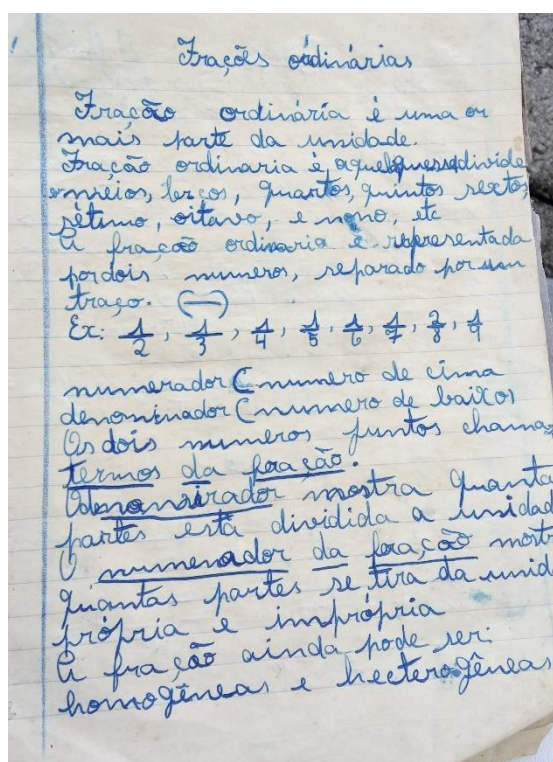 Frações ordinárias
Fração ordinária é uma ou
mais parte da unidade.
Fração ordinaria é aquelquessedivide
em meios, terços, quartos, quintos sextos,
sétimo, oitavo, e nono, etc
A fração ordinaria é representada
pordois numeros, separado por um
traço. (—)
Ex: 1/2, 1/3, 1/4, 1/5, 1/6, 1/7, 2/8, 1/9
numerador (numero de cima
denominador (numero de baixos
Os dois numeros juntos chama
termos da fração.
O mostra quanta
partes está dividida a unidad
O numerador da fração mostr
quantas partes se tira da unid
própria e imprópria
A fração ainda pode ser:
homogêneas e hecterogêneas